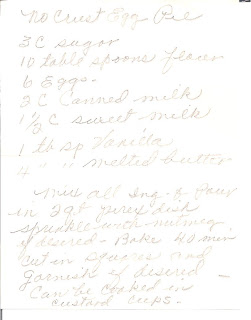 No Crust Egg Pie
3 C sugar
10 table spoons flour
6 Eggs.
2 C Canned milk
1 1/2 C sweet milk
1 tb sp Vanilla
4 " " melted butter
Mix all Ing. & Pour
in 3 qt pyrex dish
sprinkle with nutmeg
if desired - Bake 40 min
cut in squares and
garnish if desired -
Can be cooked in
custard cups.